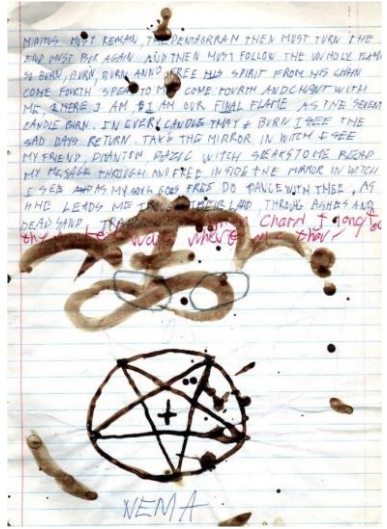 MINITOS MUST REMAIN, THE PENTAGRRAM THEN MUST TURN THE
END MUST BYR AGAIN AND THEN MUST FOLLOW THE UNHOLY
SO BURN, BURN, BURN ANND FREE HIS SPIRIT FROM HIS CHAIN
COME FOURTH SPEAK TO ME COME FOURTH AND CHANT WITH
ME, I AM OUR FINAL FLAME AS THE SEVEN
CANDLE BURN. IN EVERY CANDLE THAT I BURN I SEE THE
SAD DAYS RETURN. TAKE THE MIRROR IN WITCH I SEE
MY FRIEND, PHANTOM WITCH SPEAKS TO ME READ
MY MESSAGE THROUGH AND FREE INSIDE THE MIRROR IN WITCH
I SEE AND AS MY SONG GOES FREE DO DANCE WITH THEE, AS
SHE LEADS ME LAND, THROUG ASHES AND
DEAD SAND.
NEMA